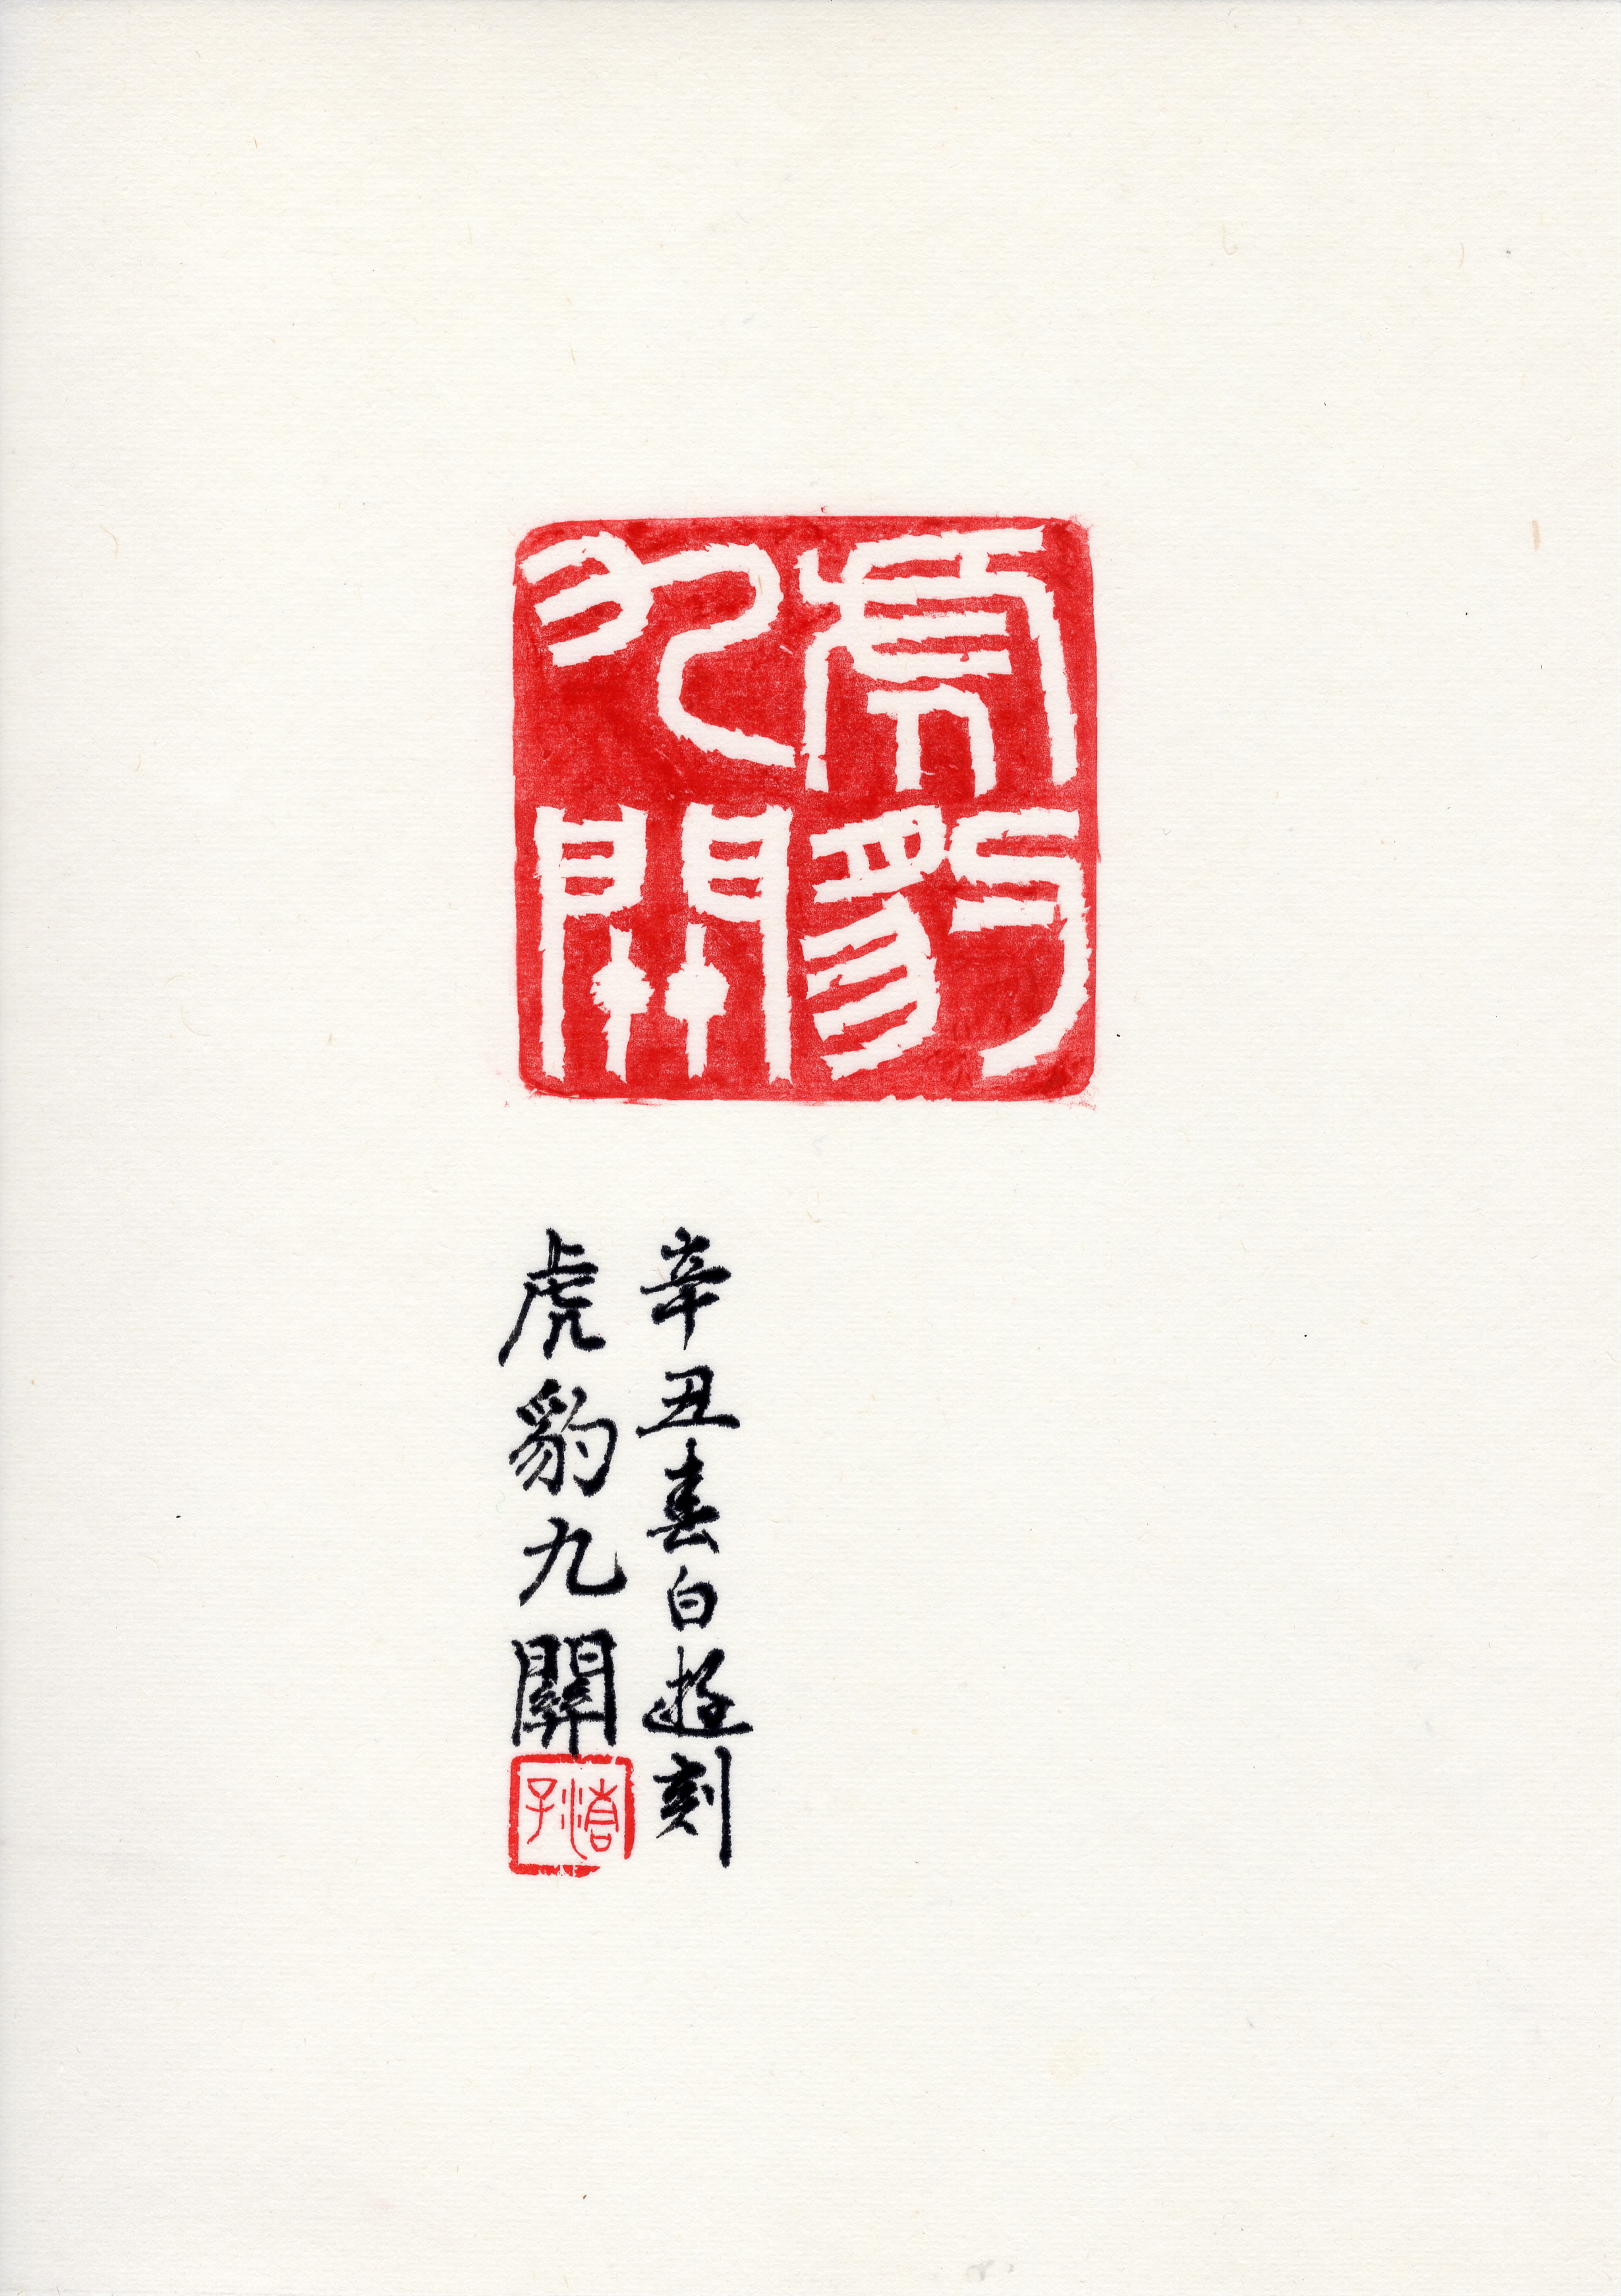 虎豹
九關
辛丑春白遊刻
虎豹九關